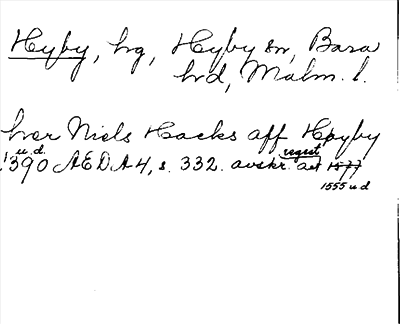 Hyby, hg, Hyby sn, Bara
hd, Malm. l.
hver Niels Hacks aff Høyby
u.d. regest
1390 ÆDA 4, s. 332. avskr. aet 1577
1555 u d